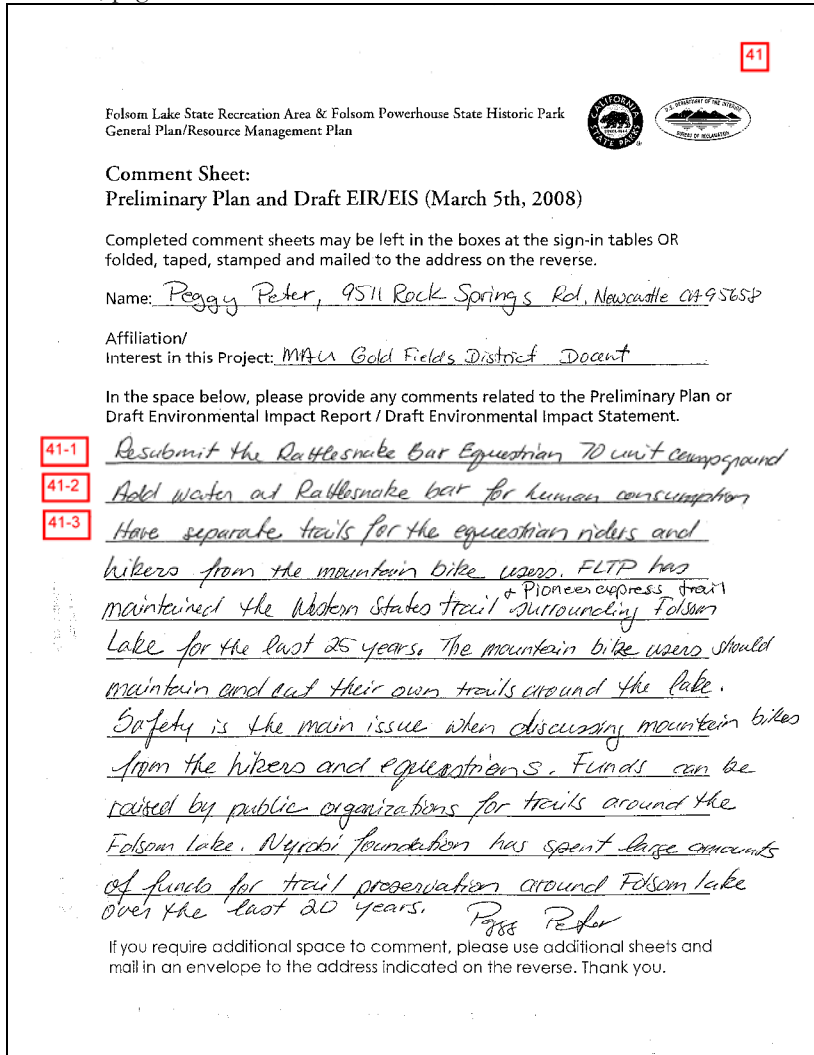 41
Folsom Lake State Recreation Area & Folsom Powerhouse State Historic Park
General Plan/Resource Management Plan
CALIFORNIA
STATE PARKS
U.S. DEPARTMENT OF THE INTERIOR
BUREAU OF RECLAMATION
Comment Sheet:
Preliminary Plan and Draft EIR/EIS (March 5th, 2008)
Completed comment sheets may be left in the boxes at the sign-in tables OR
folded, taped, stamped and mailed to the address on the reverse.
Name: Peggy Peter, 9511 Rock Springs Rd, Newcastle CA 95658
Affiliation/
Interest in this Project: MAU Gold Fields District Docent
In the space below, please provide any comments related to the Preliminary Plan or
Draft Environmental Impact Report / Draft Environmental Impact Statement.
41-1 Resubmit the Rattlesnake Bar Equestrian 70 unit campground
41-2 Add water at Rattlesnake bar for human consumption
41-3 Have separate trails for the equestrian riders and
hikers from the mountain bike users. FLTP has
+ Pioneer express trail
maintained the Western States trail surrounding Folsom
Lake for the last 25 years. The mountain bike users should
maintain and cut their own trails around the lake.
Safety is the main issue when discussing mountain bikes
from the hikers and equestrians. Funds can be
raised by public organizations for trails around the
Folsom lake. Nyrobi foundation has spent large amounts
of funds for trail preservation around Folsom lake
over the last 20 years. Pegg Peter
If you require additional space to comment, please use additional sheets and
mail in an envelope to the address indicated on the reverse. Thank you.